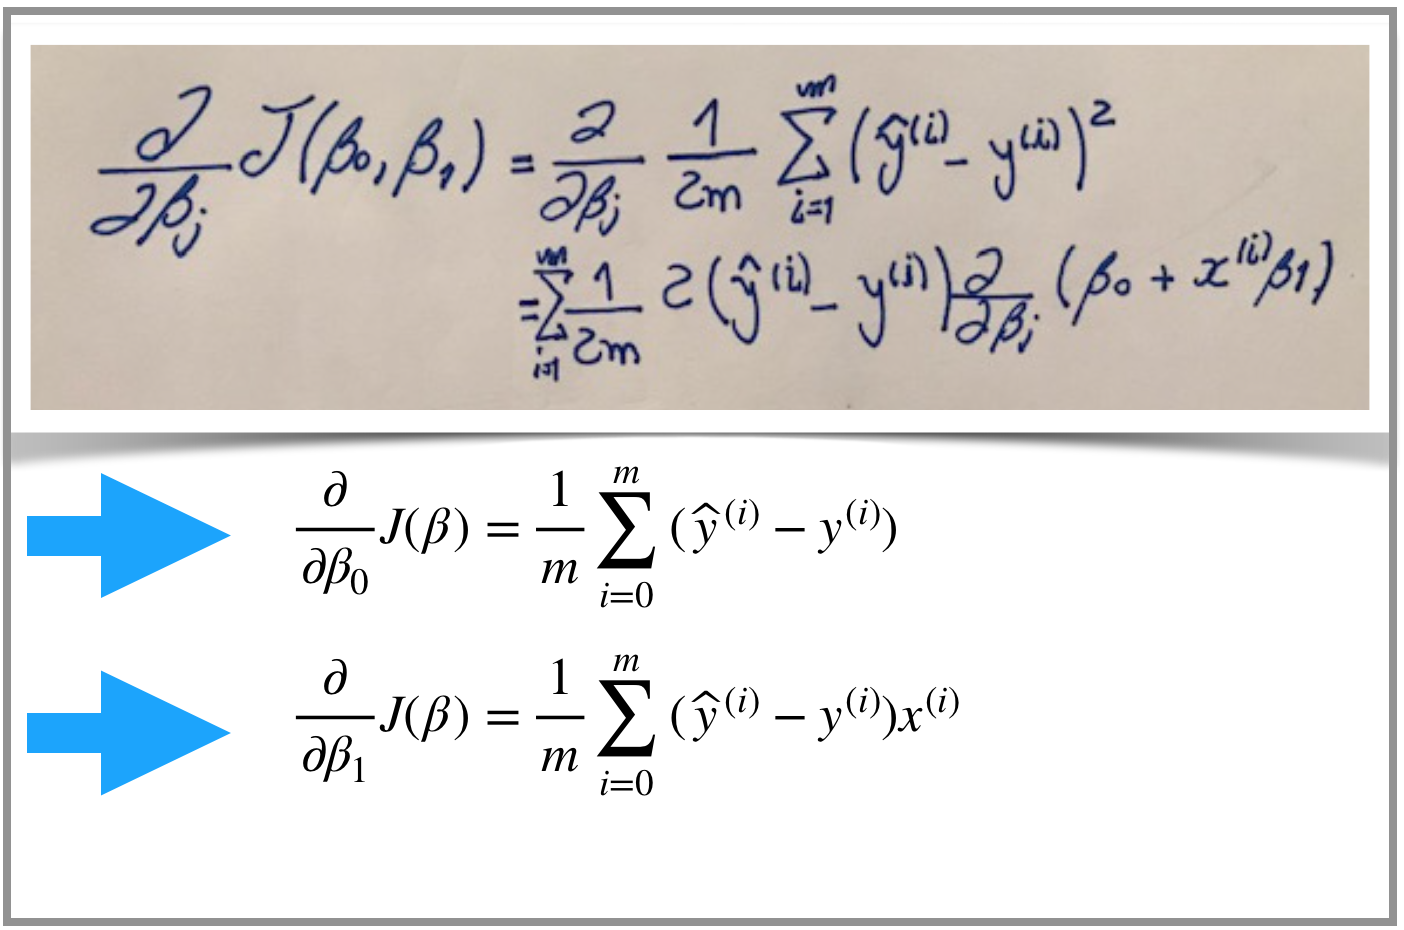 ∂/∂βj J(β0, β1) = ∂/∂βj 1/2m ∑_{i=1}^{m} (ŷ^(i) − y^(i))^2
= ∑_{i=1}^{m} 1/2m 2(ŷ^(i) − y^(i)) ∂/∂βj (β0 + x^(i)β1)
∂/∂β0 J(β) = 1/m ∑_{i=0}^{m} (ŷ^(i) − y^(i))
∂/∂β1 J(β) = 1/m ∑_{i=0}^{m} (ŷ^(i) − y^(i))x^(i)